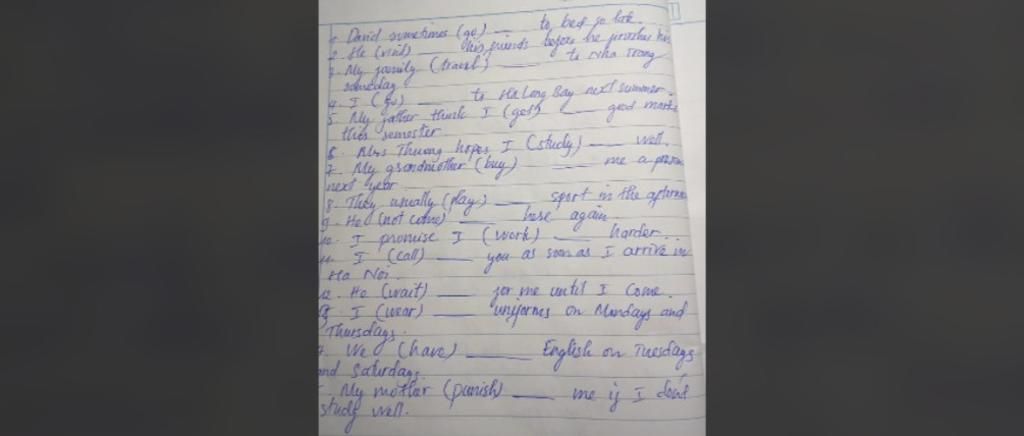 1. David sometimes (go) ___ to bed so late.
2. He (visit) ___ his friends before he finishes his
3. My family (travel) ___ to Nha Trang
someday
4. I (go) ___ to Ha Long Bay next summer.
5. My father think I (get) ___ good marks
this semester
6. Miss Thuong hopes I (study) ___ well.
7. My grandmother (buy) ___ me a
next year
8. They usually (play) ___ sport in the afternoon
9. He (not come) ___ here again.
10. I promise I (work) ___ harder.
11. I (call) ___ you as soon as I arrive in
Ha Noi.
12. He (wait) ___ for me until I come.
13. I (wear) ___ uniforms on Mondays and
Thursdays.
We (have) ___ English on Tuesdays
and Saturdays.
My mother (punish) ___ me if I don't
study well.